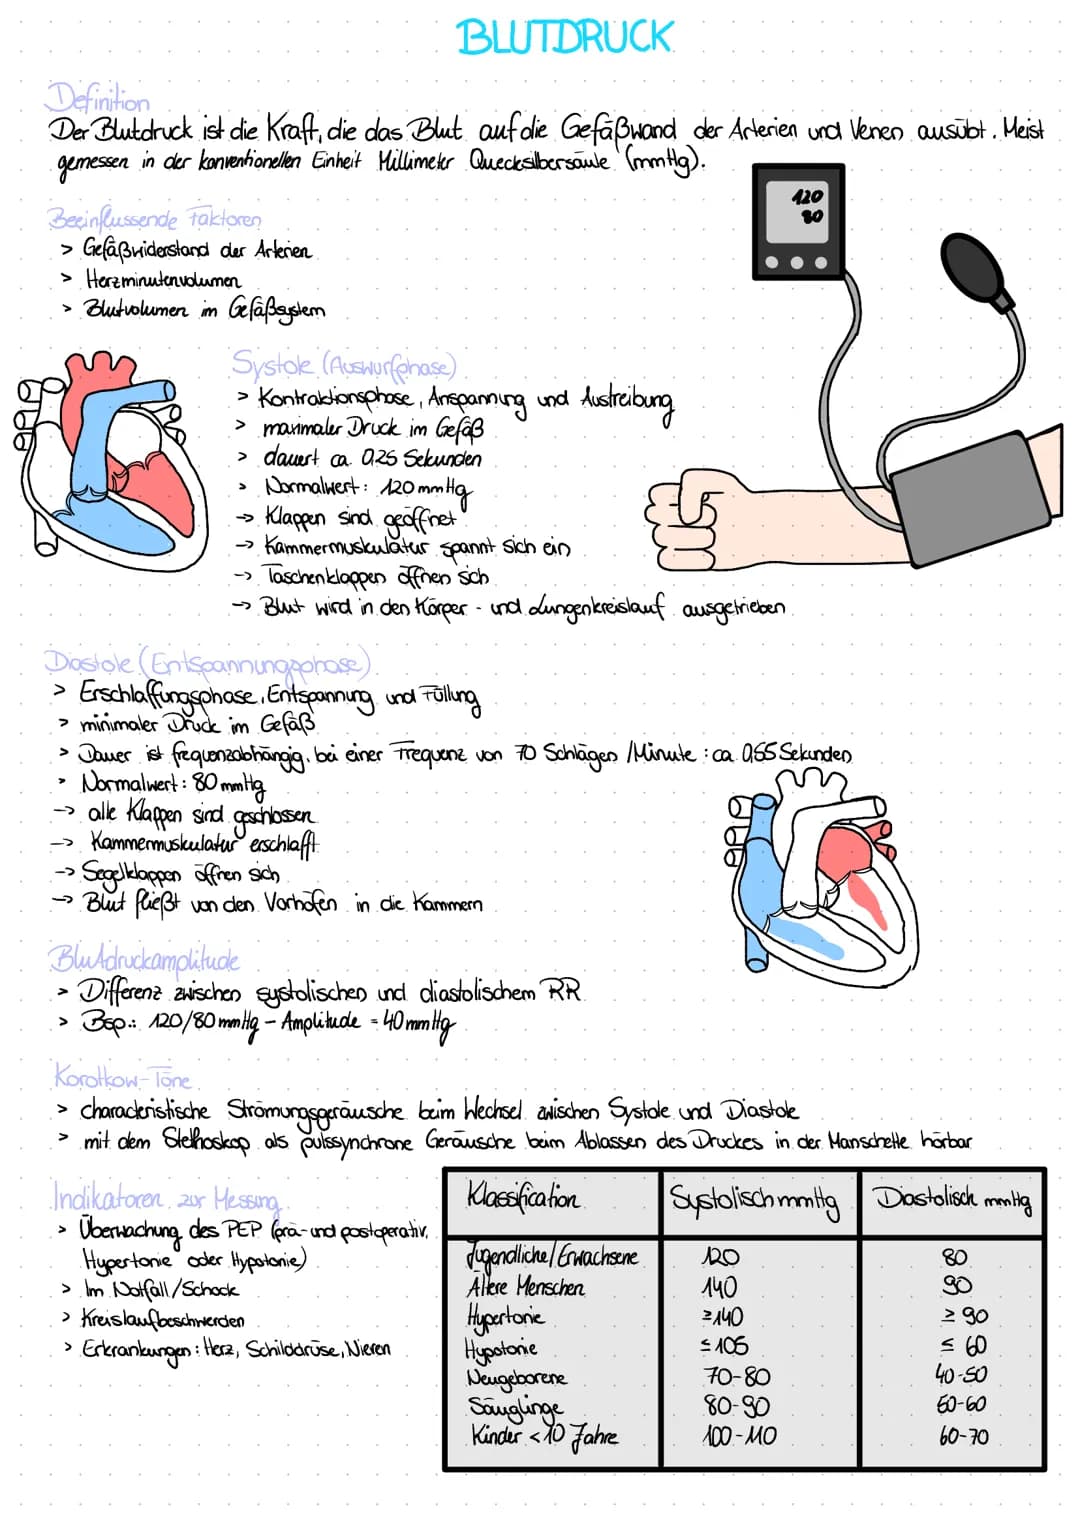 BLUTDRUCK
Definition
Der Blutdruck ist die Kraft, die das Blut auf die Gefäßwand der Arterien und Venen ausübt. Meist
gemessen in der konventionellen Einheit Millimeter Quecksilbersäule (mmHg).
120
80
Beeinflussende Faktoren
> Gefäßwiderstand der Arterien
> Herzminutenvolumen
> Blutvolumen im Gefäßsystem
Systole (Auswurfphase)
> Kontraktionsphase, Anspannung und Austreibung
> maximaler Druck im Gefäß
> dauert ca. 0,25 Sekunden
> Normalwert: 120 mmHg
-> Klappen sind geöffnet
-> Kammermuskulatur spannt sich ein
-> Taschenklappen öffnen sich
-> Blut wird in den Körper- und Lungenkreislauf ausgetrieben
Diastole (Entspannungsphase)
> Erschlaffungsphase, Entspannung und Füllung
> minimaler Druck im Gefäß
> Dauer ist frequenzabhängig, bei einer Frequenz von 70 Schlägen /Minute: ca. 0,55 Sekunden
> Normalwert: 80 mmHg
-> alle Klappen sind geschlossen
-> Kammermuskulatur erschlafft
-> Segelklappen öffnen sich
-> Blut fließt von den Vorhöfen in die Kammern
Blutdruckamplitude
> Differenz zwischen systolischen und diastolischem RR
> Bsp.: 120/80 mmHg – Amplitude = 40 mmHg
Korotkow-Töne
> characteristische Strömungsgeräusche beim Wechsel zwischen Systole und Diastole
> mit dem Stethoskop als pulssynchrone Geräusche beim Ablassen des Druckes in der Manschette hörbar
Indikatoren zur Messung
> Überwachung des PEP (prä- und postoperativ,
Hypertonie oder Hypotonie)
> Im Notfall/Schock
> Kreislaufbeschwerden
> Erkrankungen: Herz, Schilddrüse, Nieren
Klassification Systolisch mmHg Diastolisch mmHg
Jugendliche/Erwachsene 120 80
Ältere Menschen 140 90
Hypertonie ≥140 ≥ 90
Hypotonie ≤105 ≤ 60
Neugeborene 70-80 40-50
Säuglinge 80-90 60-60
Kinder <10 Jahre 100-110 60-70